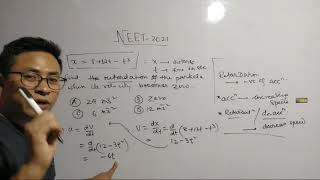 NEET-2021
x = 8+12t - t³ : x → distance
t → time in sec
Find the retardation of the particle
when its velocity becomes zero.
A 24 ms⁻² B Zero
C 6 ms⁻² D 12 ms⁻²
a = dV/dt
= d/dt (12-3t²)
= -6t
V = dx/dt = d/dt (8+12t-t³)
= 12-3t²
Retardation
→ -ve of accⁿ
* accⁿ → increasing
speed
decrease speed